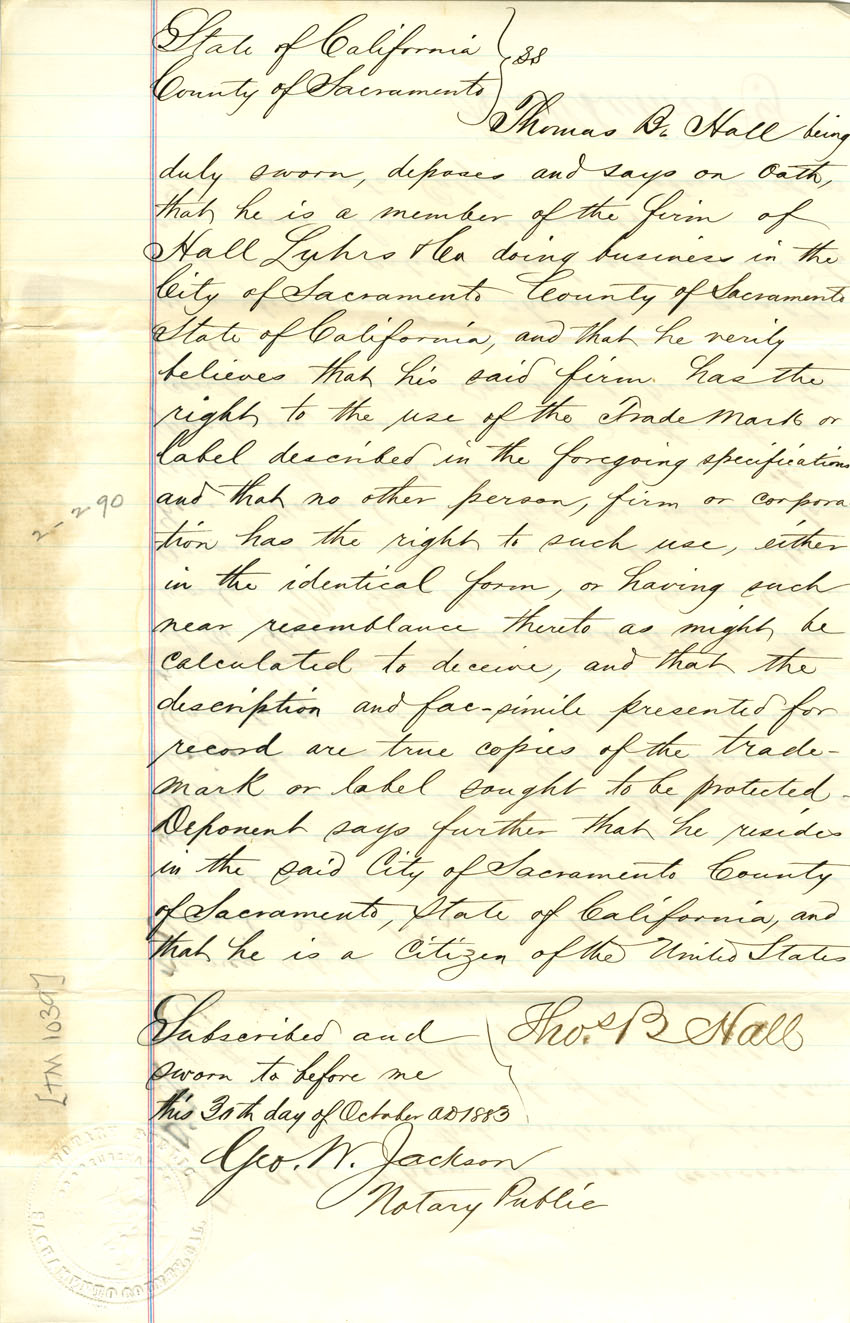 State of California
County of Sacramento } ss
Thomas B. Hall being
duly sworn, deposes and says on oath,
that he is a member of the firm of
Hall Luhrs & Co doing business in the
City of Sacramento County of Sacramento
State of California, and that he verily
believes that his said firm has the
right to the use of the Trade Mark or
label described in the foregoing specifications
and that no other person, firm or corpora
tion has the right to such use, either
in the identical form, or having such
near resemblance thereto as might be
calculated to deceive, and that the
description and fac-simile presented for
record are true copies of the trade-
mark or label sought to be protected.
Deponent says further that he resides
in the said City of Sacramento County
of Sacramento, State of California, and
that he is a Citizen of the United States
Subscribed and
sworn to before me
this 30th day of October AD 1883
Thos. B Hall
Geo. W. Jackson
Notary Public
2-2 90
[TM 1039]
NOTARY PUBLIC
SACRAMENTO COUNTY, CAL.